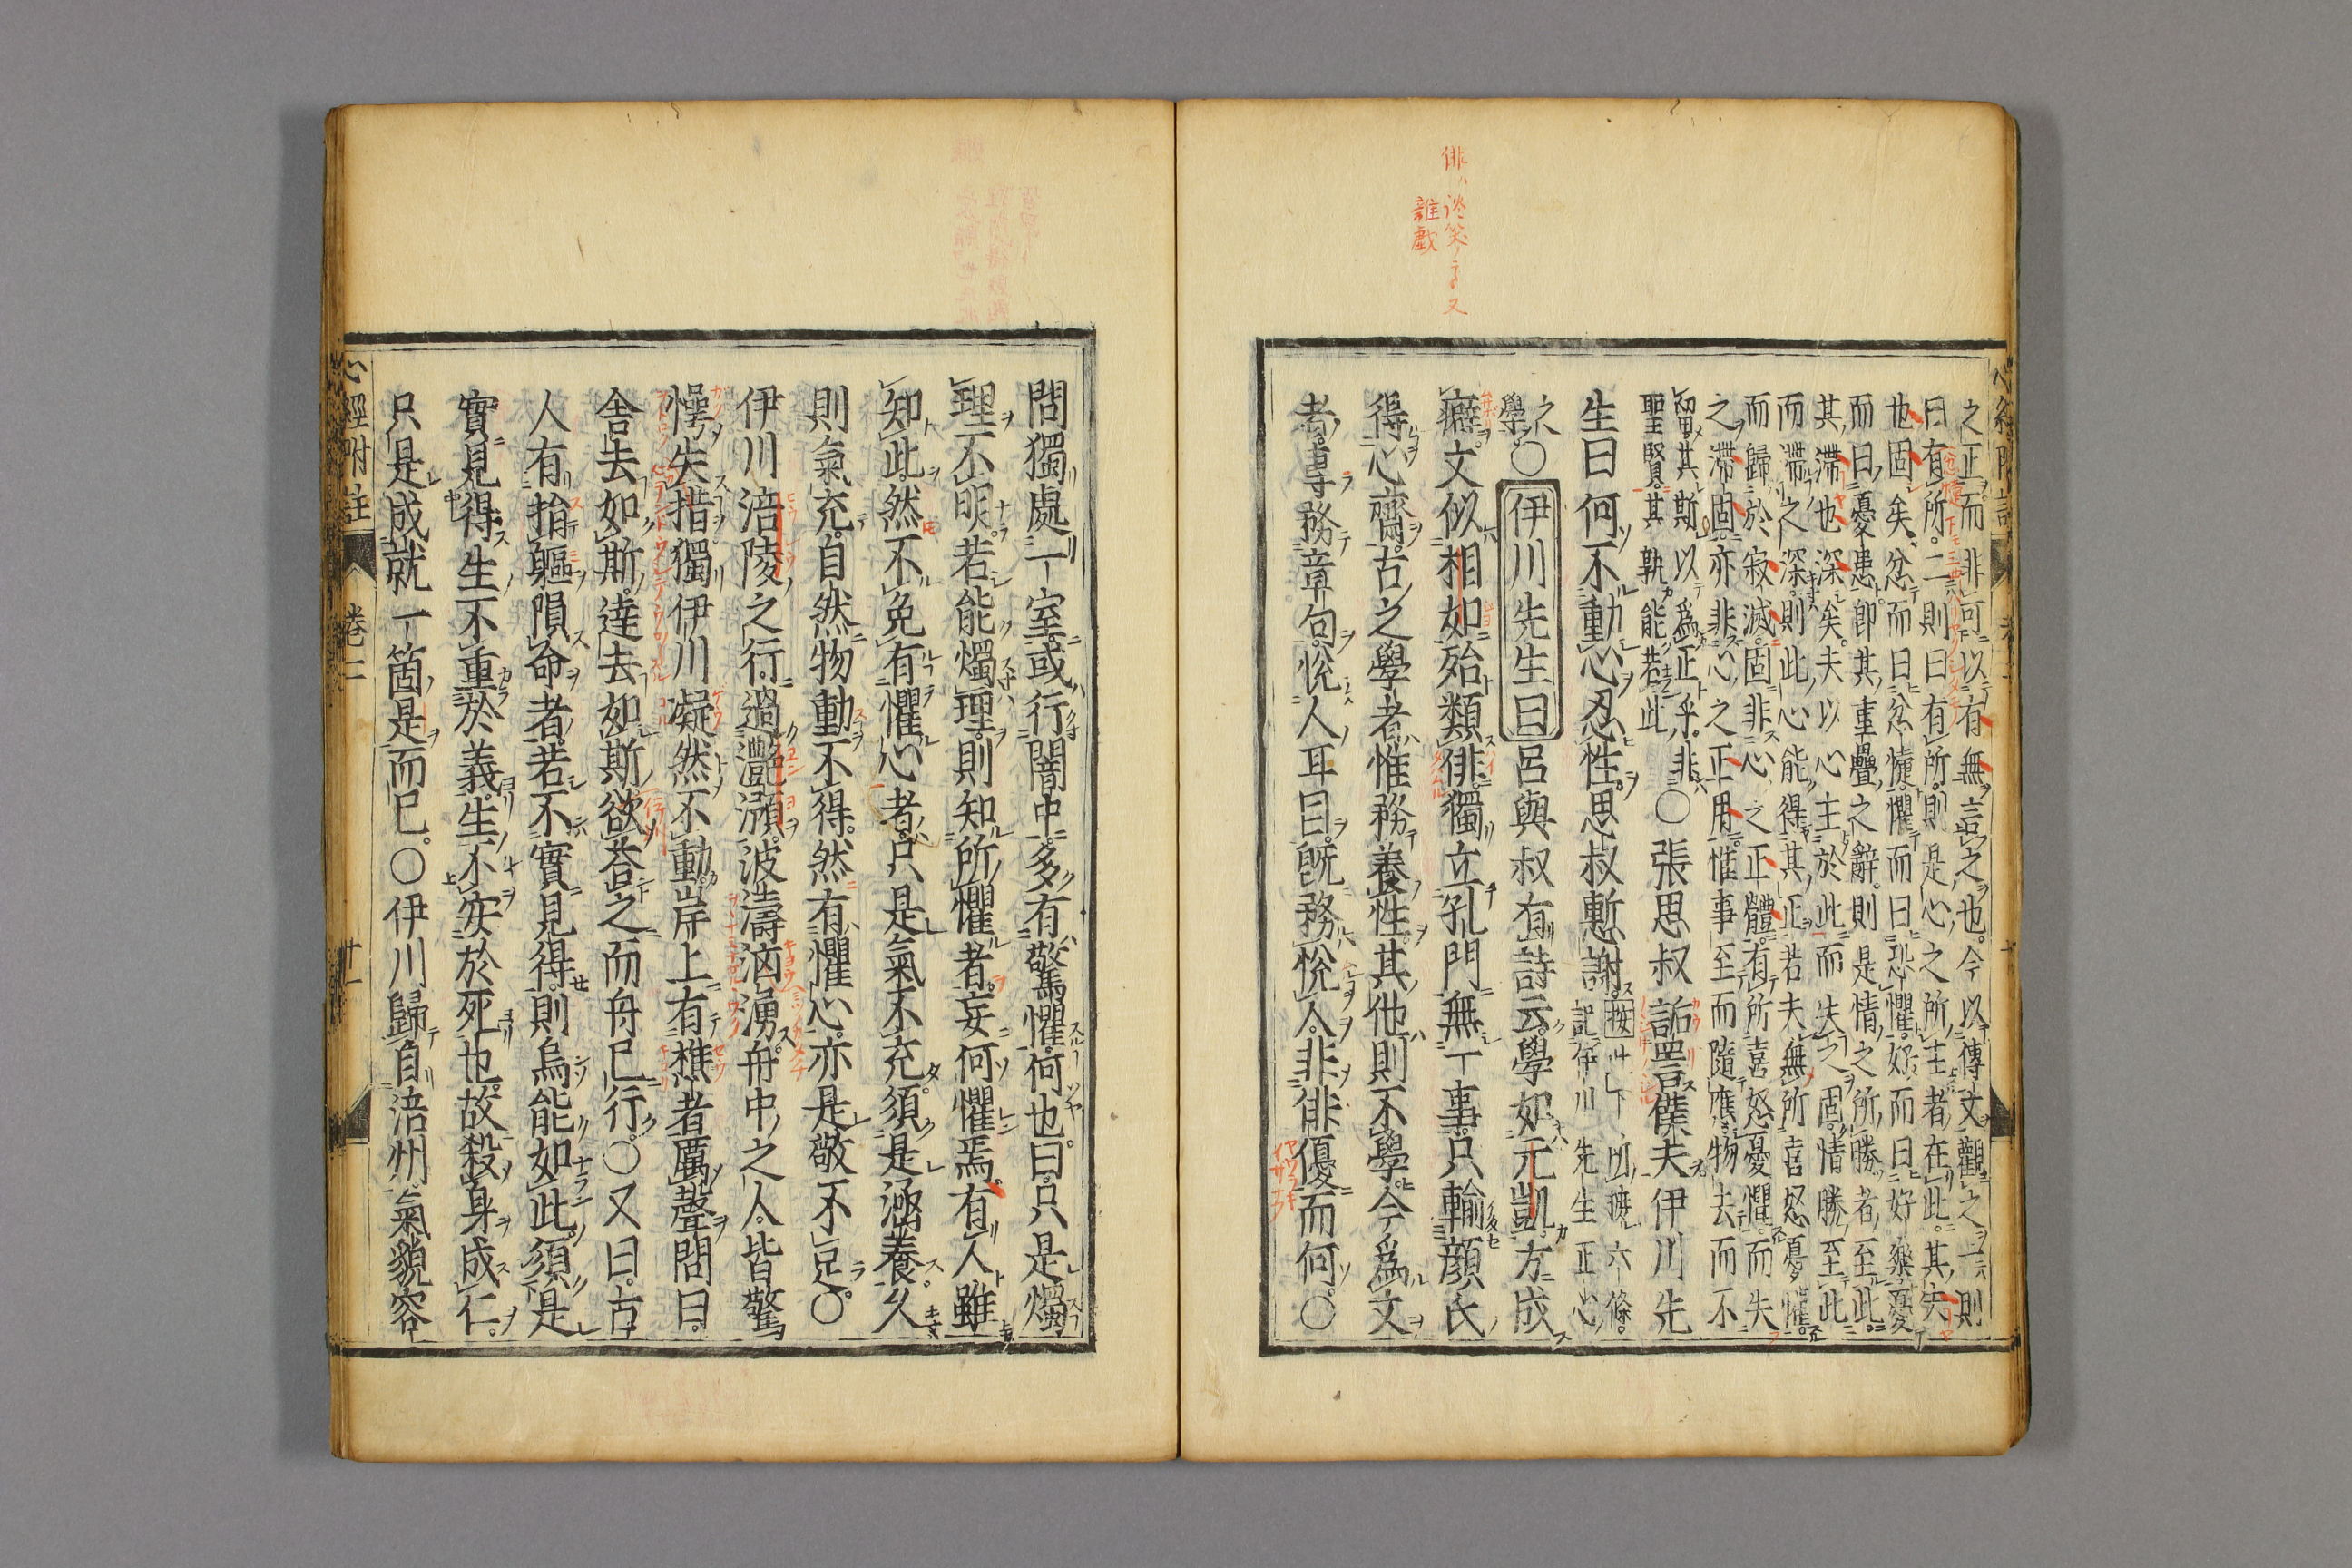 心經附註
俳ハ
雜戯
之正而非可以有無言之也。今以傳文觀之一則
曰有所。二則曰有所。則是心之所主者在此。其失
也固矣。忿而曰忿懥。懼而曰恐懼。好而曰好樂。憂
而曰憂患。卽其重疊之辭。則是情之所勝者至此。
其滯也深矣。夫以心主於此而失之固。情勝至此
而滯之深。則此心能得其正。若夫無所喜怒憂懼。
而歸於寂滅。固非心之正體。有所喜怒憂懼。而失
之滯固。亦非心之正用。惟事至而隨應。物去而不
留。其斯以爲正乎。非
聖賢。其孰能若此
○張思叔詬詈僕夫。伊川先
生曰何不動心忍性。思叔慙謝。
按此下凡摭六條。
記伊川先生正心
之學。
○伊川先生曰呂與叔有詩云。學如元凱方成
癖。文似相如殆類俳。獨立孔門無一事。只輸顏氏
得心齋。古之學者。惟務養性。其他則不學。今爲文
者。專務章句。悅人耳目。既務悅人。非俳優而何。○
問獨處一室。或行闇中。多有驚懼。何也。曰。只是燭
理不明。若能燭理。則知所懼者。妄何懼焉。有人雖
知此。然不免有懼心者。只是氣不充。須是涵養。久
則氣充。自然物動不得。然有懼心。亦是敬不足。○
伊川涪陵之行。過灔澦。波濤洶湧。舟中之人。皆驚
愕失措。獨伊川凝然不動。岸上有樵者。厲聲問曰。
舍去如斯。達去如斯。欲荅之而舟已行。○又曰。古
人有捐軀隕命者。若不實見得。則烏能如此。須是
實見得。生不重於義。生不安於死也。故殺身成仁。
只是成就一箇是而已。○伊川歸自涪州。氣貌容
心經附註 卷二 廿一